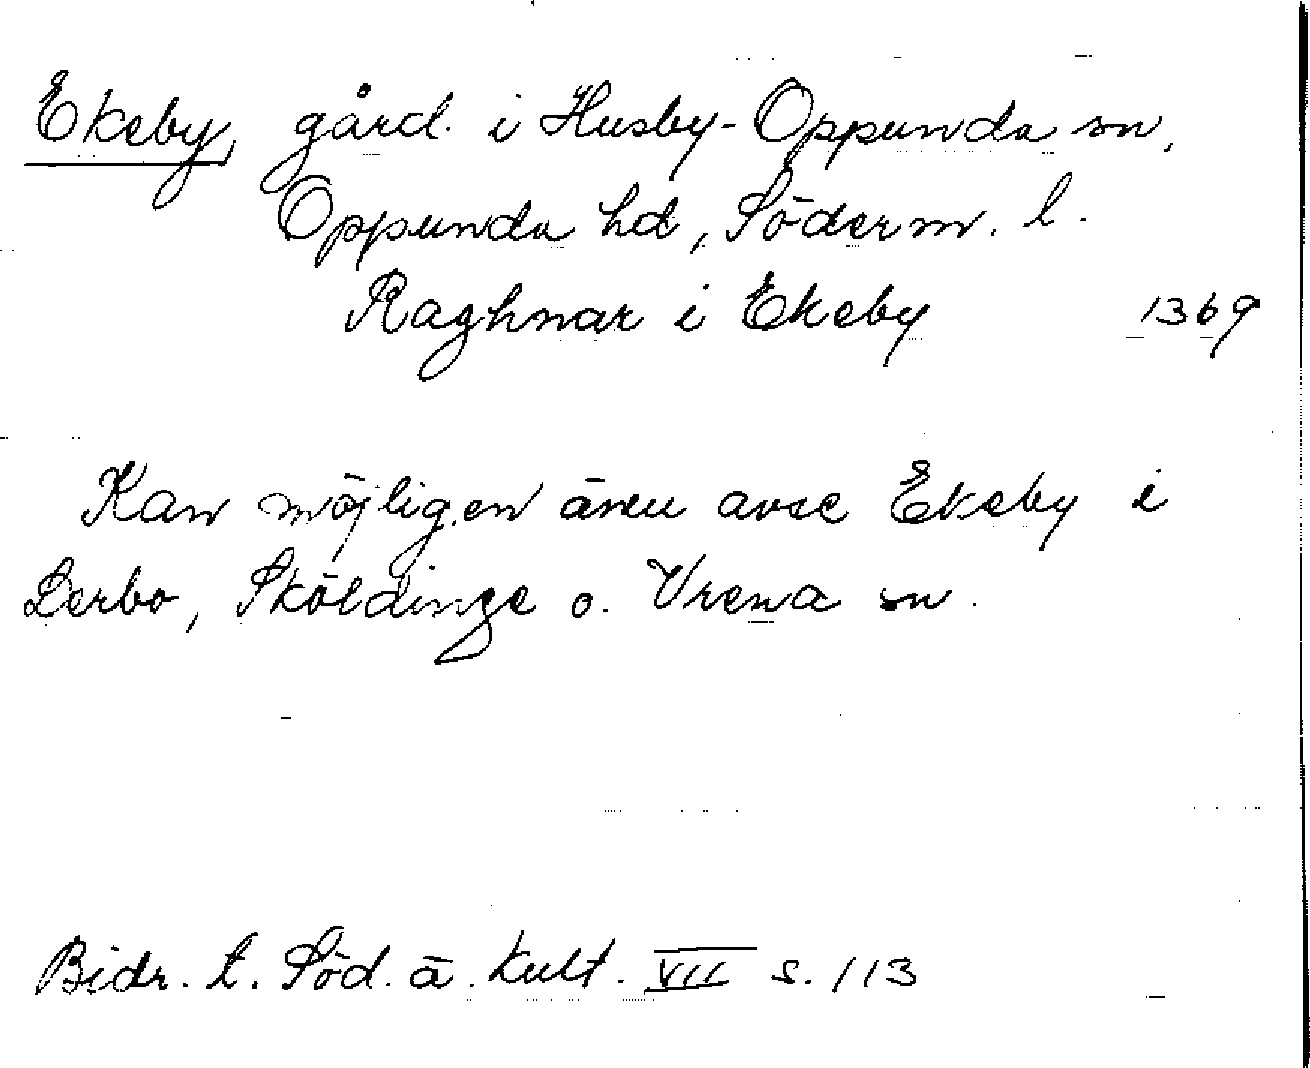 Ekeby, gård i Husby-Oppunda sn,
Oppunda hd, Söderm. l.
Raghnar i Ekeby 1369
Kan möjligen även avse Ekeby i
Lerbo, Sköldinge o. Vrena sn.
Bidr. t. Söd. ä. kult. VII s. 113